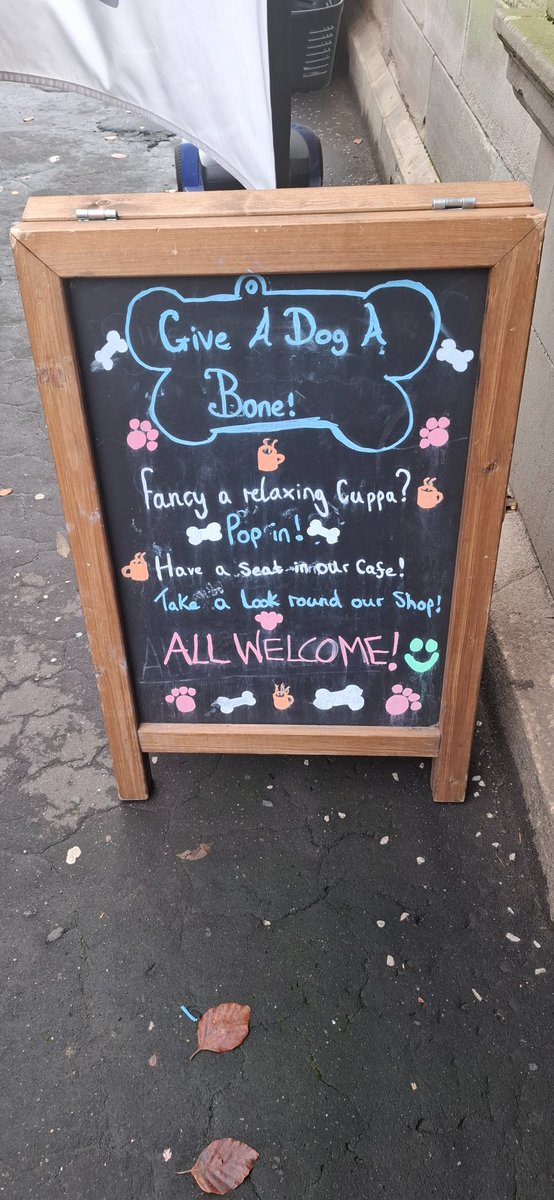 Give A Dog A
Bone!
Fancy a relaxing Cuppa?
Pop in!
Have a seat in our Cafe!
Take a Look round our Shop!
ALL WELCOME!